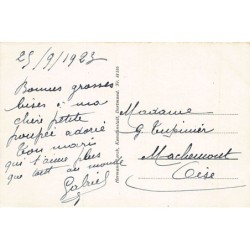 25/9/1923
Bonnes grosses
bises à ma
chère petite
poupée adorée
Ton mari
qui t'aime plus
que tout au monde
Gabriel
Madame
G. Tupinier
Machemont
Oise